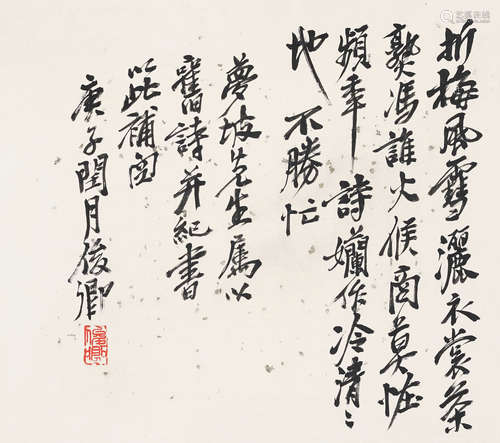 折梅風雪灑衣裳茶
熟馮誰火候商莫怪
頻年詩嬾作冷清〻
地不勝忙
夢坡先生屬以
舊詩并紀書
以此補
庚子閏月俊卿
俊卿